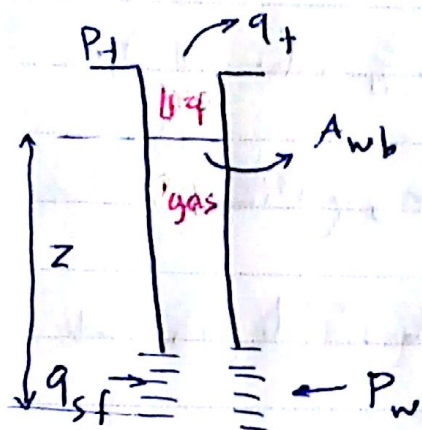 Pt
qt
liq
Awb
gas
Z
qsf
Pw